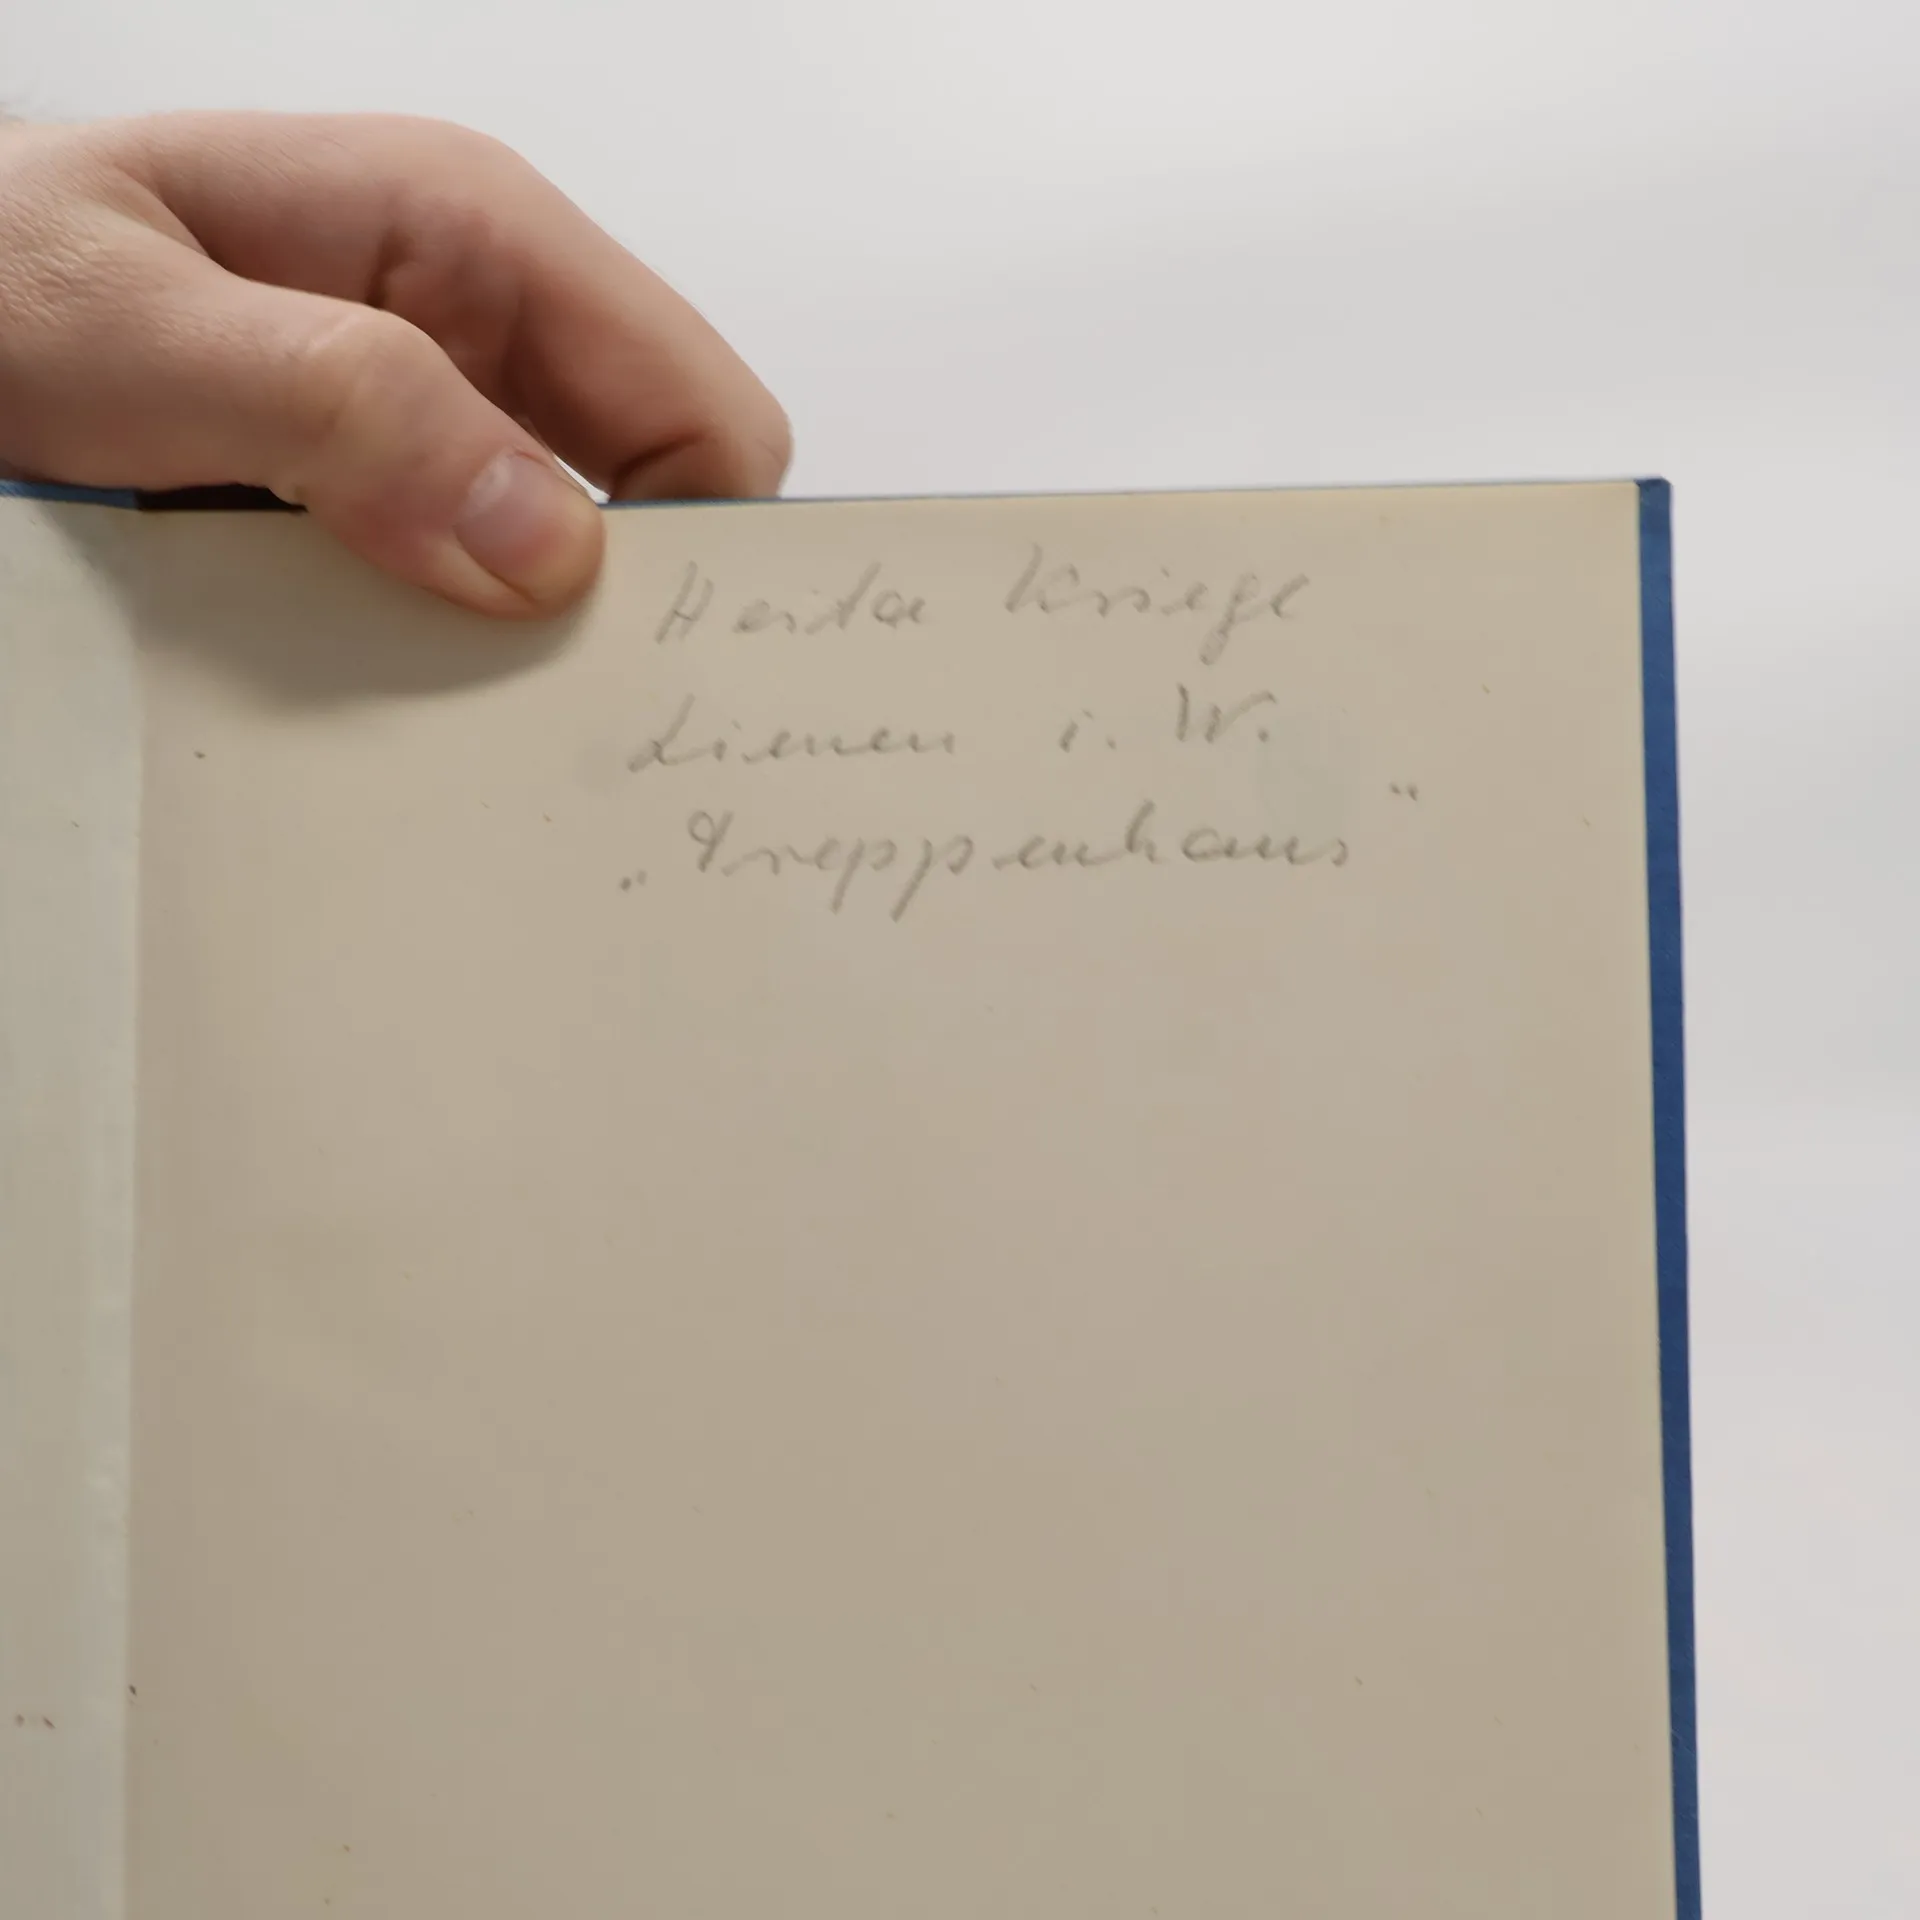 Herta Kriege
Lienen i. W.
„Treppenhaus"